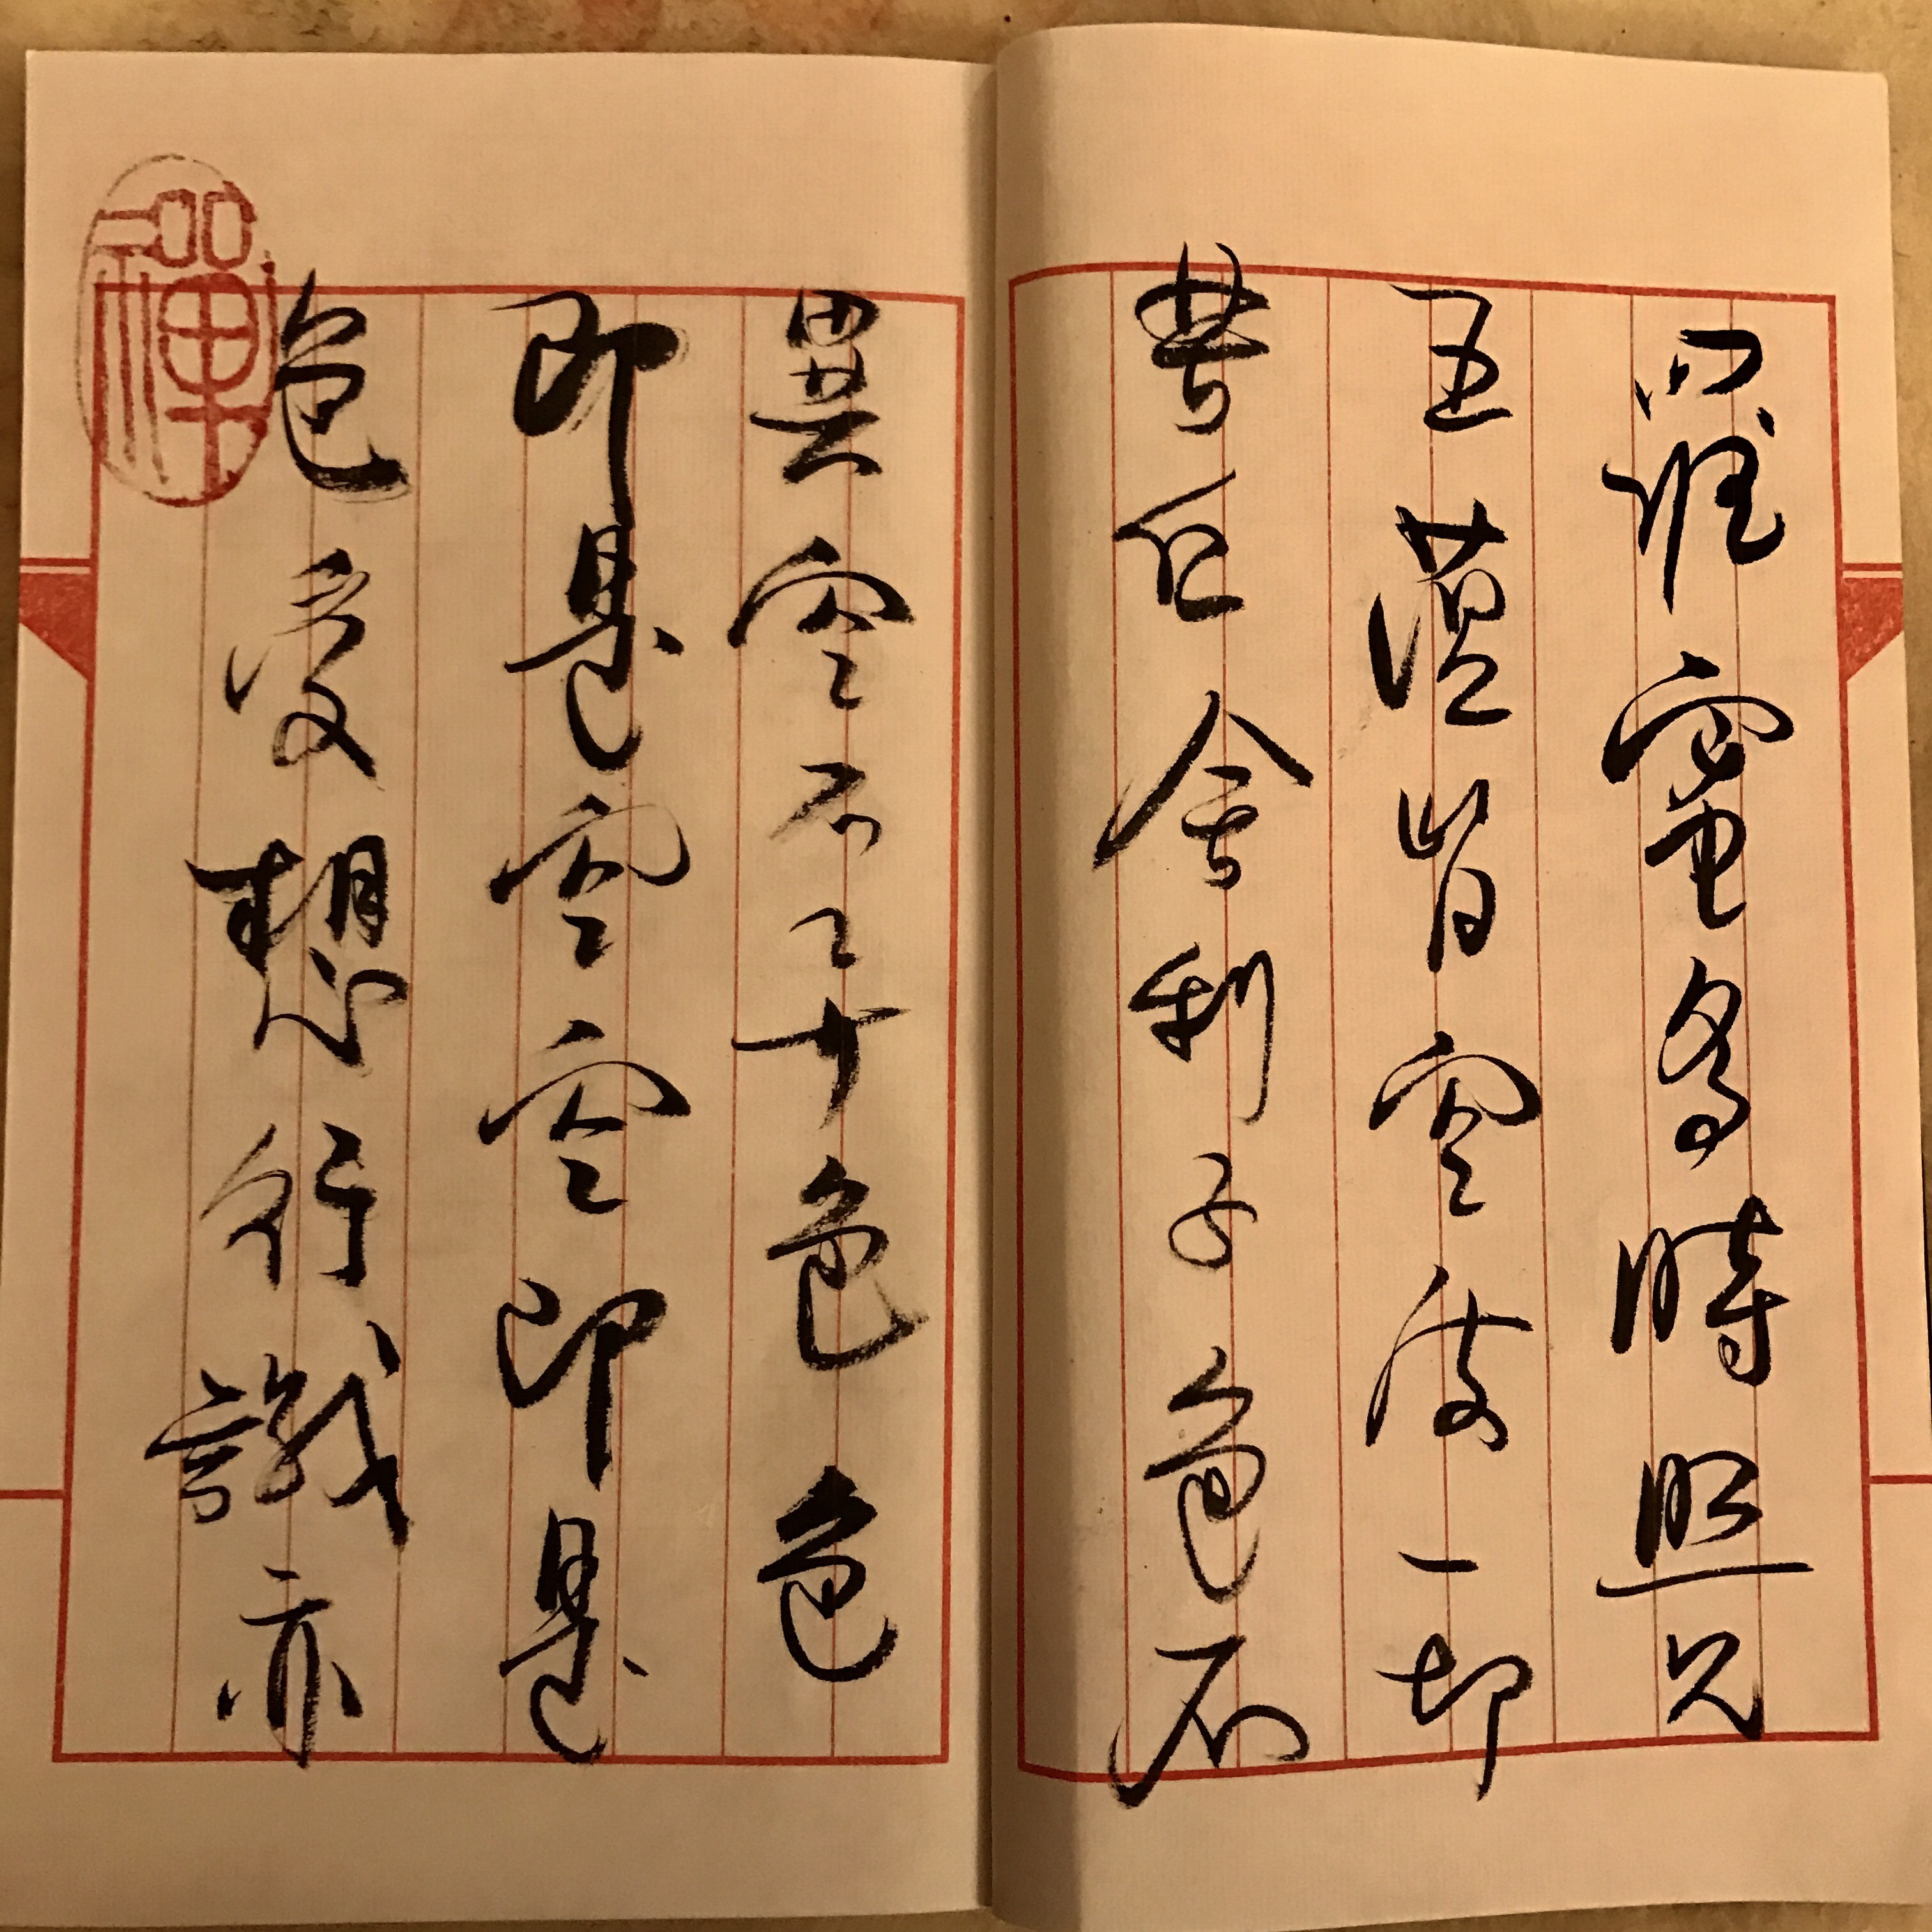 羅蜜多時照見
五蘊皆空度一切
苦厄舍利子色不
異空不异色色
即是空空即是
色受想行識亦
禪